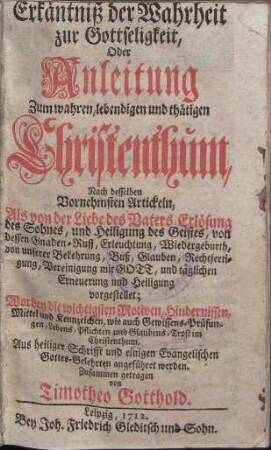 Erkäntniß der Wahrheit
zur Gottseligkeit,
Oder
Anleitung
Zum wahren, lebendigen und thätigen
Christenthum,
Nach desselben
Vornehmsten Artickeln,
Als von der Liebe des Vaters, Erlösung
des Sohnes, und Heiligung des Geistes, von
dessen Gnaden-Ruff, Erleuchtung, Wiedergeburth,
von unsere Bekehrung, Buß, Glauben, Rechtferti-
gung, Vereinigung mit GOTT, und täglichen
Erneuerung und Heiligung
vorgestellet;
Worbey die wichtigsten Motiven, Hindernissen,
Mittel und Kennzeichen, wie auch Gewissens-Prüfun-
gen, Lebens-Pflichten und Glaubens-Trost im
Christenthum.
Aus heiliger Schrifft und einigen Evangelischen
Gottes-Gelehrten angeführet werden.
Zusammen getragen
von
Timotheo Gotthold.
Leipzig, 1712.
Bey Joh. Friedrich Gleditsch und Sohn.